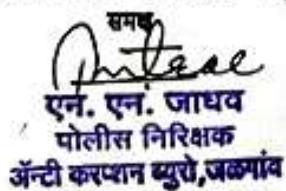 समक्ष
एन. एन. जाधव
पोलीस निरिक्षक
ॲन्टी करप्शन ब्युरो,जळगांव